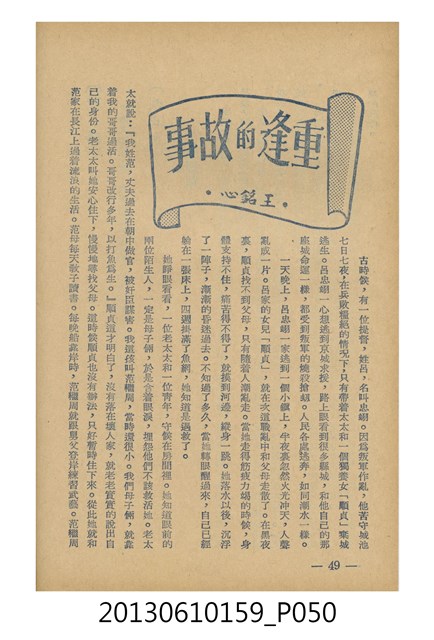 重逢的故事
•王銘心•
古時候，有一位提督，姓呂，名叫忠翊。因為叛軍作亂，他苦守城池
七日七夜，在兵敗糧絕的情況下，只有帶着太太和一個獨養女「順貞」棄城
逃生。呂忠翊一心想逃到京城求援，路上眼看到很多縣城，和他自己的那
座城命運一樣，都受到叛軍的燒殺搶刼。人民各處逃奔，如同潮水一樣。
一天晚上，呂忠翊一家逃到一個小鎮上，半夜裏忽然火光冲天，人聲
亂成一片。呂家的女兒「順貞」，就在次這戰亂中和父母走散了。在黑夜
裏，順貞找不到父母，只有隨着人潮亂走。當她走得筋疲力竭的時候，身
體支持不住，痛苦得不得了，就摸到河邊，縱身一跳。她落水以後，沉浮
了一陣子，漸漸的昏迷過去。不知過了多久，當她轉眼醒過來，自己已經
躺在一張床上，四週掛滿了魚網，她知道是遇救了。
她睜眼看看，一位老太太和一位青年，守候在房間裡。她知道眼前的
兩位陌生人，一定是母子倆，於是含着眼淚，埋怨他們不該救活她。老太
太就說：「我姓范，丈夫過去在朝中做官，被奸臣謀害。我這孩叫范權周，當時還很小。我們母子倆，就靠
着我的哥哥過活。哥哥改行多年，以打魚為生。」順貞這才明白了，沒有落在壞人家，就老老實實的說出自
己的身份。老太太叫她安心住下，慢慢地尋找父母。這時候順貞也沒有辦法，只好暫時住下來。從此她就和
范家在長江上過着流浪的生活。范母每天敎子讀書。每晚船靠岸時，范權周就跟舅父登岸練習武藝。范權周
— 49 —
20130610159_P050